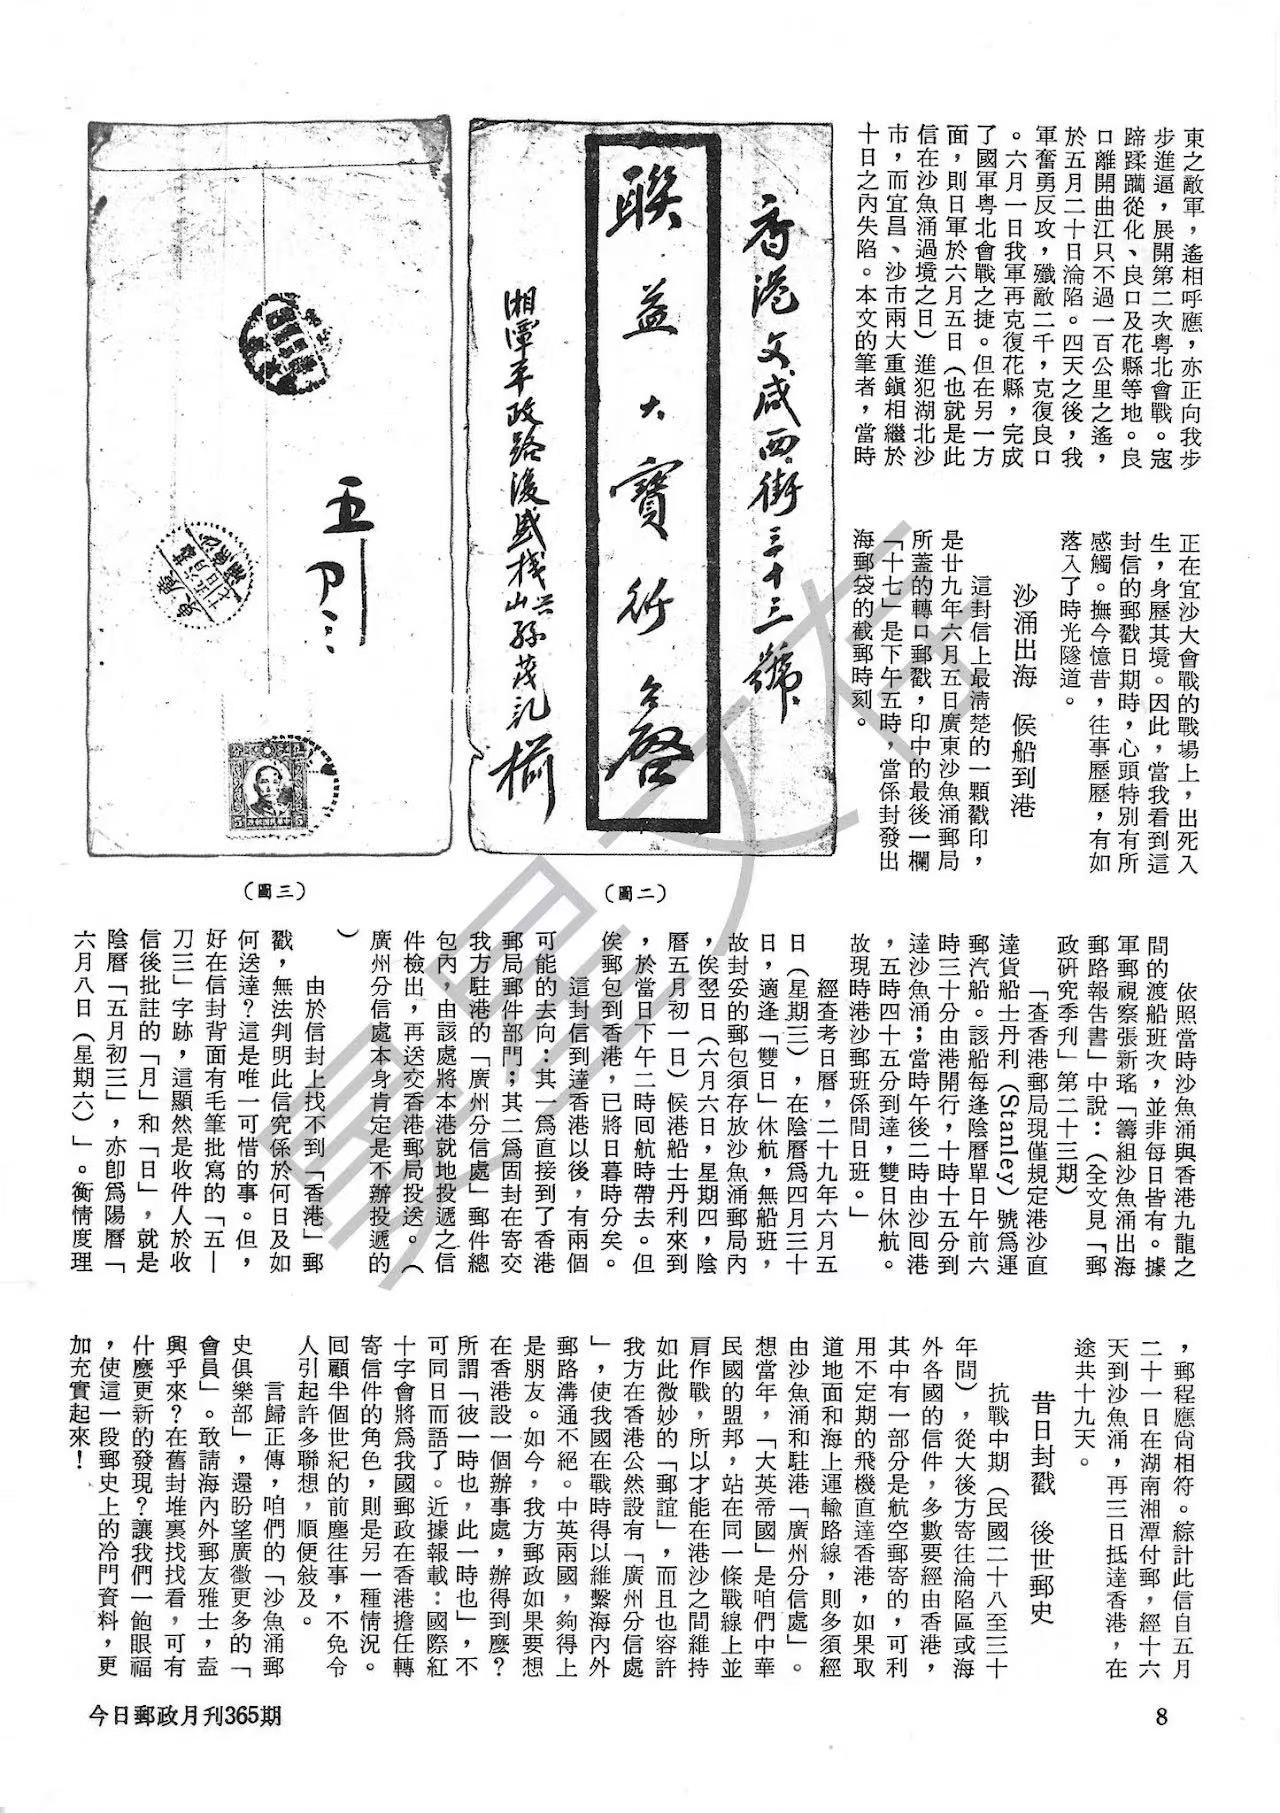 東之敵軍，遙相呼應，亦正向我步
步進逼，展開第二次粵北會戰。寇
蹄蹂躪從化、良口及花縣等地。良
口離開曲江只不過一百公里之遙，
於五月二十日淪陷。四天之後，我
軍奮勇反攻，殲敵二千，克復良口
。六月一日我軍再克復花縣，完成
了國軍粵北會戰之捷。但在另一方
面，則日軍於六月五日（也就是此
信在沙魚涌過境之日）進犯湖北沙
市，而宜昌、沙市兩大重鎮相繼於
十日之內失陷。本文的筆者，當時
正在宜沙大會戰的戰場上，出死入
生，身歷其境。因此，當我看到這
封信的郵戳日期時，心頭特別有所
感觸。撫今憶昔，往事歷歷，有如
落入了時光隧道。
沙涌出海　候船到港
這封信上最清楚的一顆戳印，
是廿九年六月五日廣東沙魚涌郵局
所蓋的轉口郵戳，印中的最後一欄
「十七」是下午五時，當係封發出
海郵袋的截郵時刻。
香港文咸西街三十三號
聯益大寶行台啓
湘潭平政路後盛棧興山孫茂記櫥
（圖二）
五月刀三
（圖三）
依照當時沙魚涌與香港九龍之
間的渡船班次，並非每日皆有。據
軍郵視察張新瑤「籌組沙魚涌出海
郵路報告書」中說：（全文見「郵
政研究季刊」第二十三期）
「查香港郵局現僅規定港沙直
達貨船士丹利（Stanley）號爲運
郵汽船。該船每逢陰曆單日午前六
時三十分由港開行，十時十五分到
達沙魚涌；當時午後二時由沙囘港
，五時四十五分到達，雙日休航。
故現時港沙郵班係間日班。」
經查考日曆，二十九年六月五
日（星期三），在陰曆爲四月三十
日，適逢「雙日」休航，無船班，
故封妥的郵包須存放沙魚涌郵局內
，俟翌日（六月六日，星期四，陰
曆五月初一日）候港船士丹利來到
，於當日下午二時囘航時帶去。但
俟郵包到香港，已將日暮時分矣。
這封信到達香港以後，有兩個
可能的去向：其一爲直接到了香港
郵局郵件部門；其二爲固封在寄交
我方駐港的「廣州分信處」郵件總
包內，由該處將本港就地投遞之信
件檢出，再送交香港郵局投送。（
廣州分信處本身肯定是不辦投遞的
）
由於信封上找不到「香港」郵
戳，無法判明此信究係於何日及如
何送達？這是唯一可惜的事。但，
好在信封背面有毛筆批寫的「五｜
刀三」字跡，這顯然是收件人於收
信後批註的「月」和「日」，就是
陰曆「五月初三」，亦卽爲陽曆「
六月八日（星期六）」。衡情度理
，郵程應尙相符。綜計此信自五月
二十一日在湖南湘潭付郵，經十六
天到沙魚涌，再三日抵達香港，在
途共十九天。
昔日封戳　後世郵史
抗戰中期（民國二十八至三十
年間），從大後方寄往淪陷區或海
外各國的信件，多數要經由香港，
其中有一部分是航空郵寄的，可利
用不定期的飛機直達香港，如果取
道地面和海上運輸路線，則多須經
由沙魚涌和駐港「廣州分信處」。
想當年，「大英帝國」是咱們中華
民國的盟邦，站在同一條戰線上並
肩作戰，所以才能在港沙之間維持
如此微妙的「郵誼」，而且也容許
我方在香港公然設有「廣州分信處
」，使我國在戰時得以維繫海內外
郵路溝通不絕。中英兩國，夠得上
是朋友。如今，我方郵政如果要想
在香港設一個辦事處，辦得到麼？
所謂「彼一時也，此一時也」，不
可同日而語了。近據報載：國際紅
十字會將爲我國郵政在香港擔任轉
寄信件的角色，則是另一種情況。
囘顧半個世紀的前塵往事，不免令
人引起許多聯想，順便敍及。
言歸正傳，咱們的「沙魚涌郵
史俱樂部」，還盼望廣徵更多的「
會員」。敢請海內外郵友雅士，盍
興乎來？在舊封堆裏找找看，可有
什麼更新的發現？讓我們一飽眼福
，使這一段郵史上的冷門資料，更
加充實起來！
今日郵政月刊365期
8